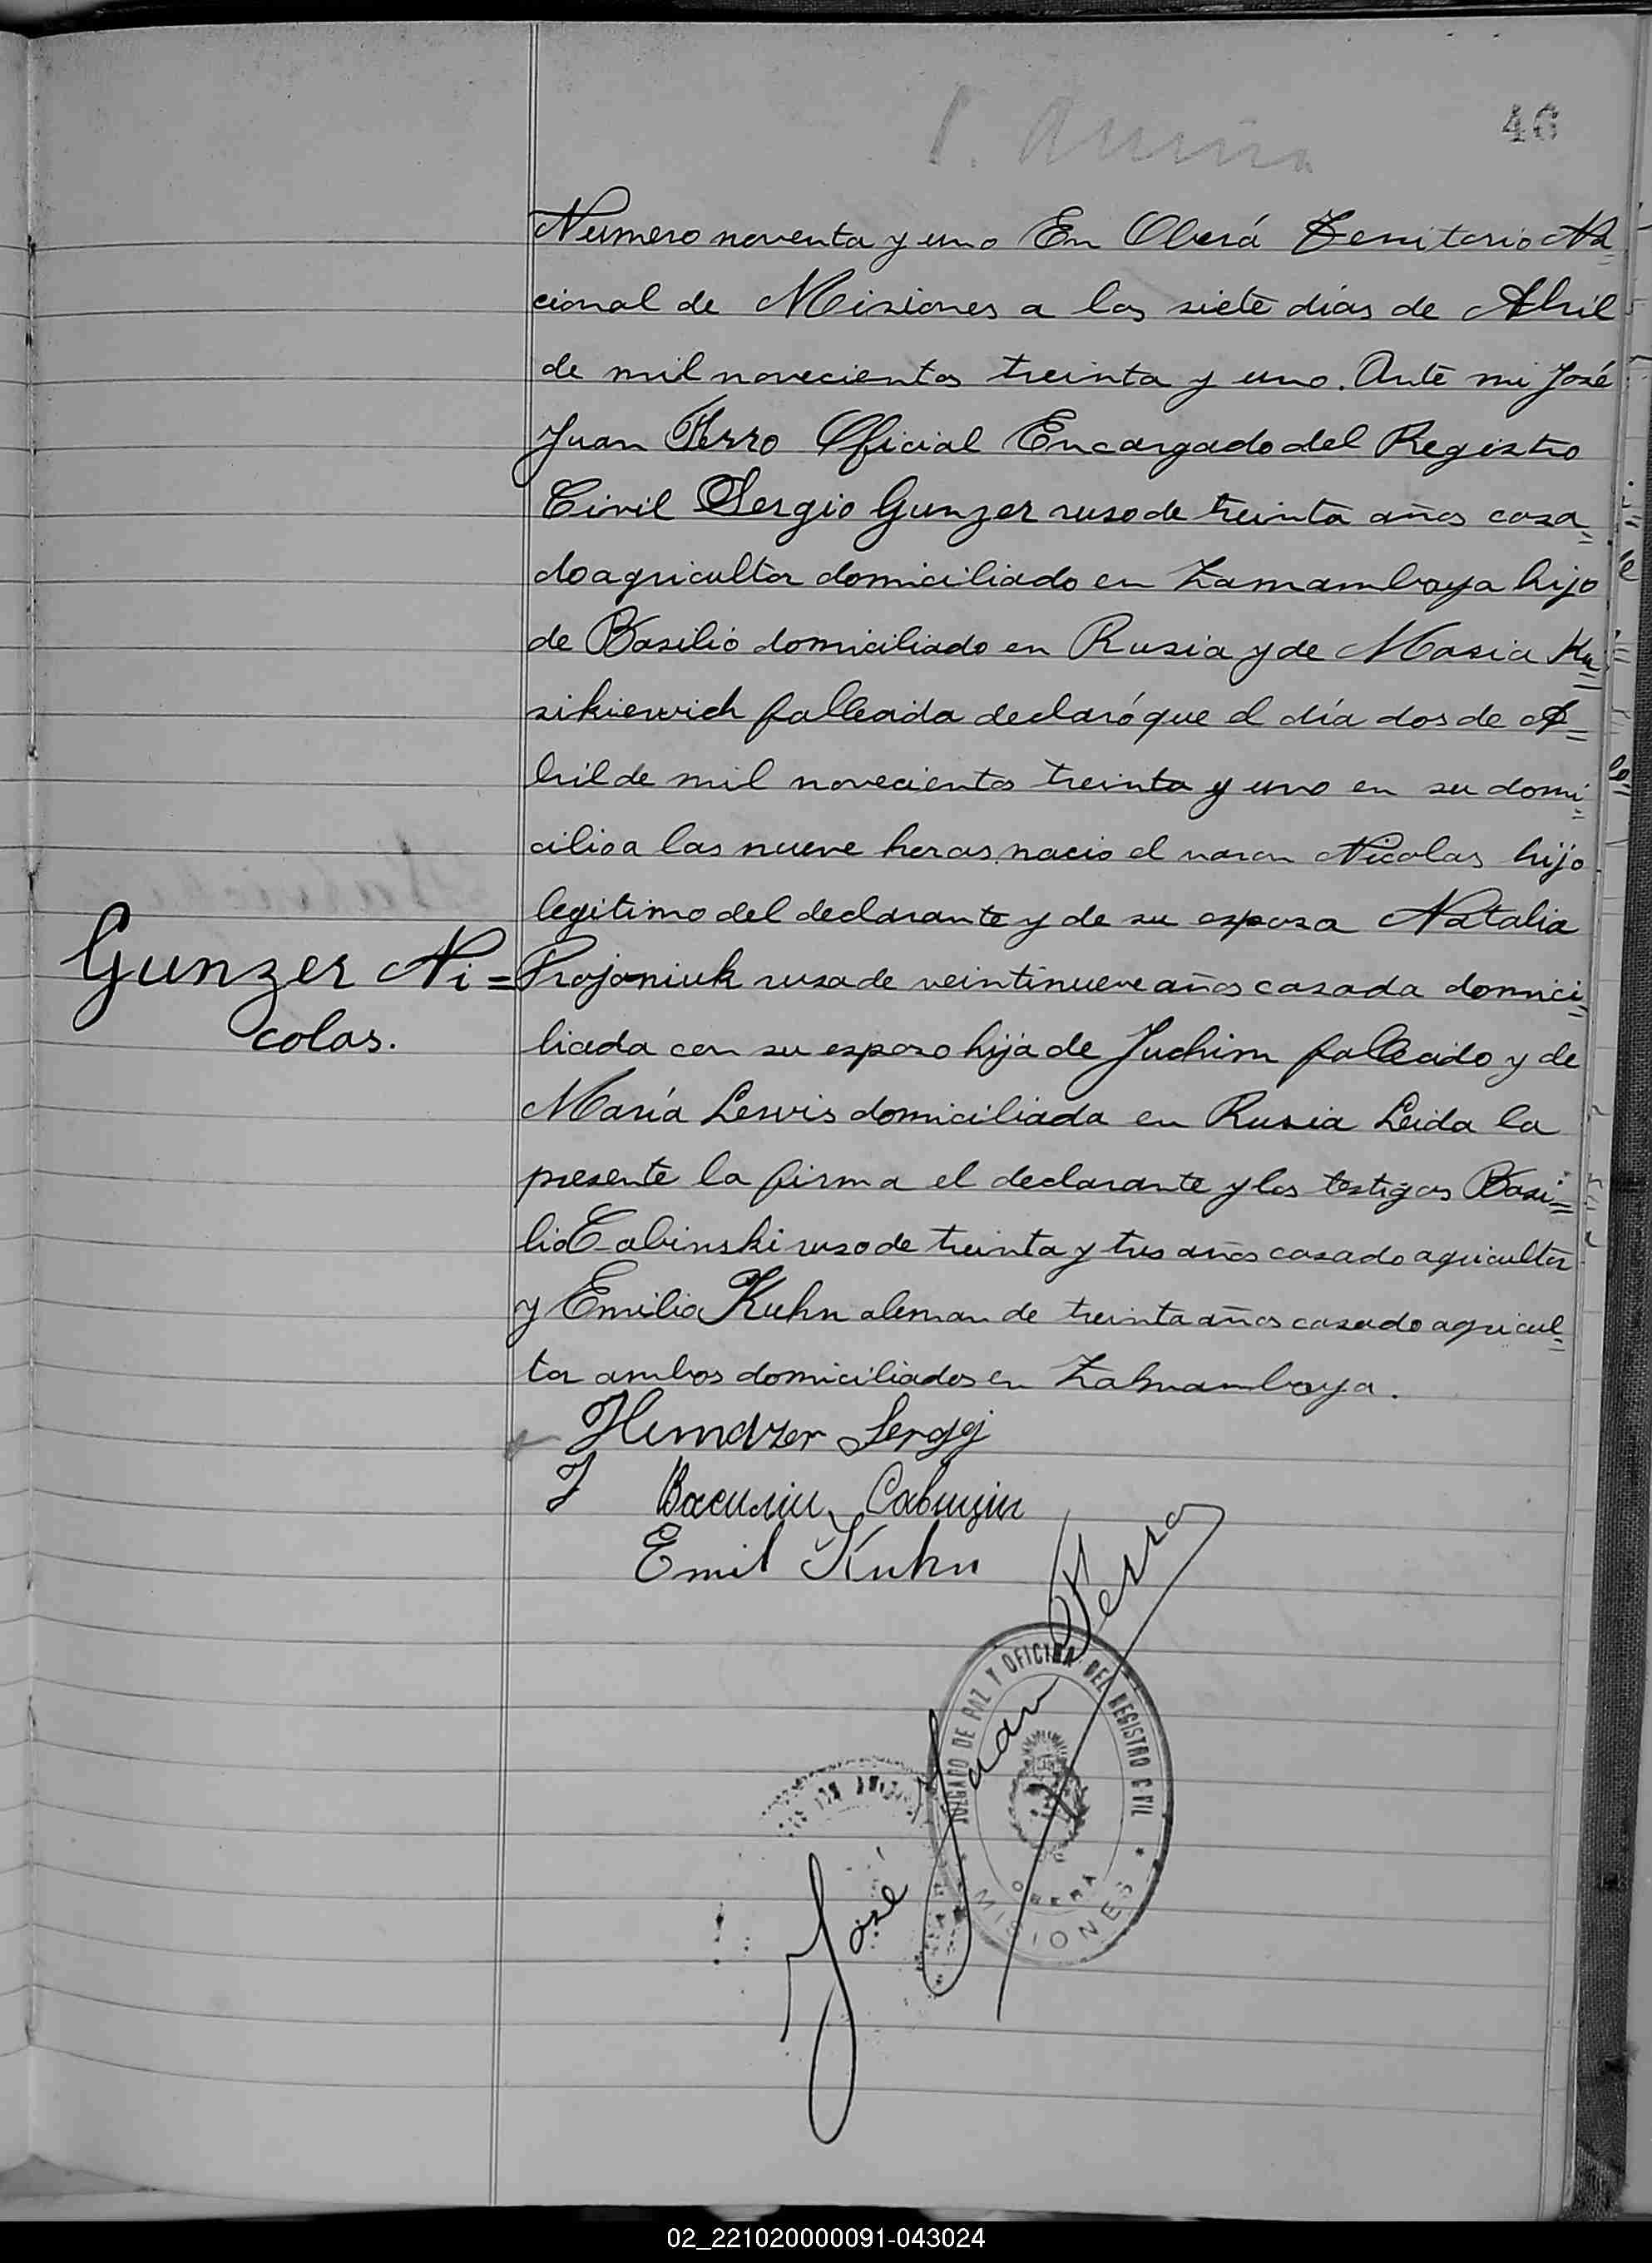 46
Numero noventa y uno En Oberá Territorio Na=
cional de Misiones a los siete dias de Abril
de mil novecientos treinta y uno. Ante mi José
Juan Ferro Oficial Encargado del Registro
Civil Sergio Gunzer ruso de treinta años casa=
do agricultor domiciliado en Zamambaya hijo
de Basilio domiciliado en Rusia y de Maria Ku=
sikiewich fallecida declaró que el día dos de A=
bril de mil novecientos treinta y uno en su domi=
cilio a las nueve horas nacio el varon Nicolas hijo
legitimo del declarante y de su esposa Natalia
Gunzer Ni=
colas.
Projoniuk rusa de veintinueve años casada domici=
liada con su esposo hija de Juchim fallecido y de
María Lewis domiciliada en Rusia Leida la
presente la firma el declarante y los testigos Basi=
lio Cabinski ruso de treinta y tres años casado agricultor
y Emilio Kuhn aleman de treinta años casado agricul=
tor ambos domiciliados en Zamambaya.
Sergj
Emil Kuhn
José Juan Ferro
JUZGADO DE PAZ Y OFICINA DEL REGISTRO CIVIL
OBERÁ
* MISIONES *
02_221020000091-043024